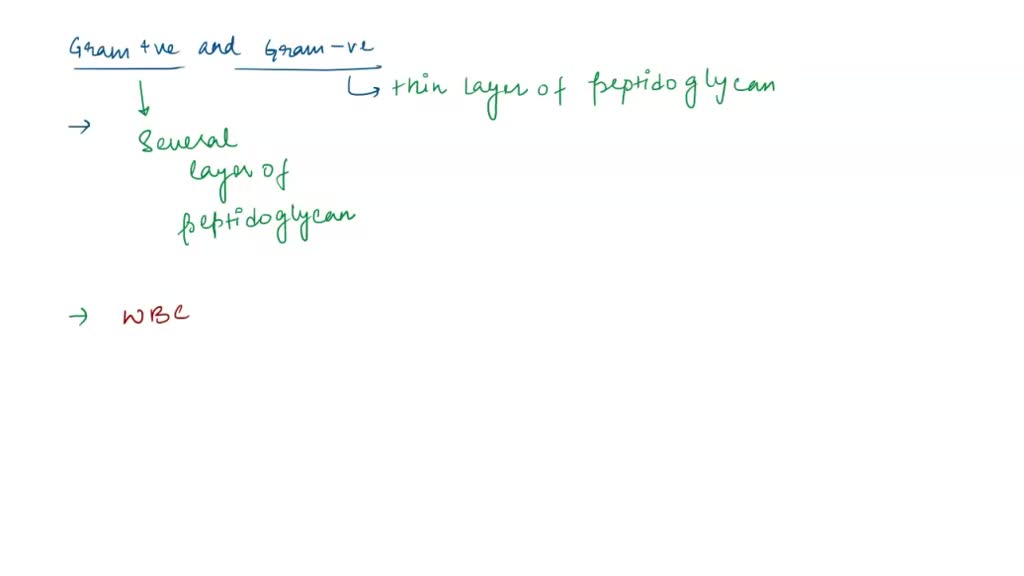 Gram +ve and Gram -ve
↳ thin layer of peptidoglycan
→
Several
layer of
peptidoglycan
→ WBC